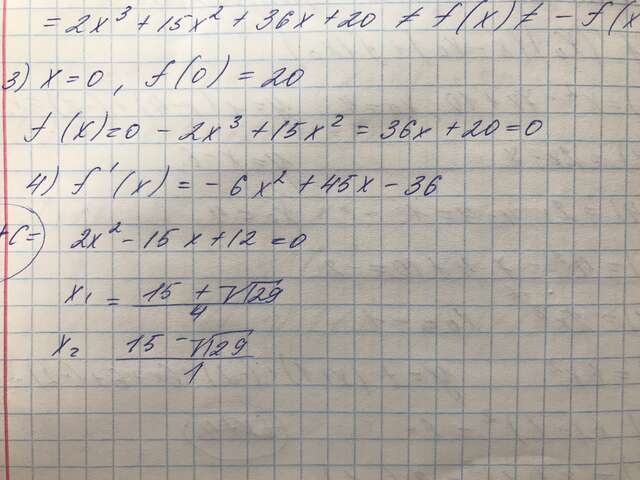 = 2x³ + 15x² + 36x + 20 ≠ f(x) ≠ - f(x
3) x = 0, f(0) = 20
f(x)=0 - 2x³ + 15x² = 36x + 20 = 0
4) f'(x) = - 6x² + 45x - 36
2x² - 15x + 12 = 0
+C=
x₁ = 15 + √129 / 4
x₂ 15 - √129 / 1